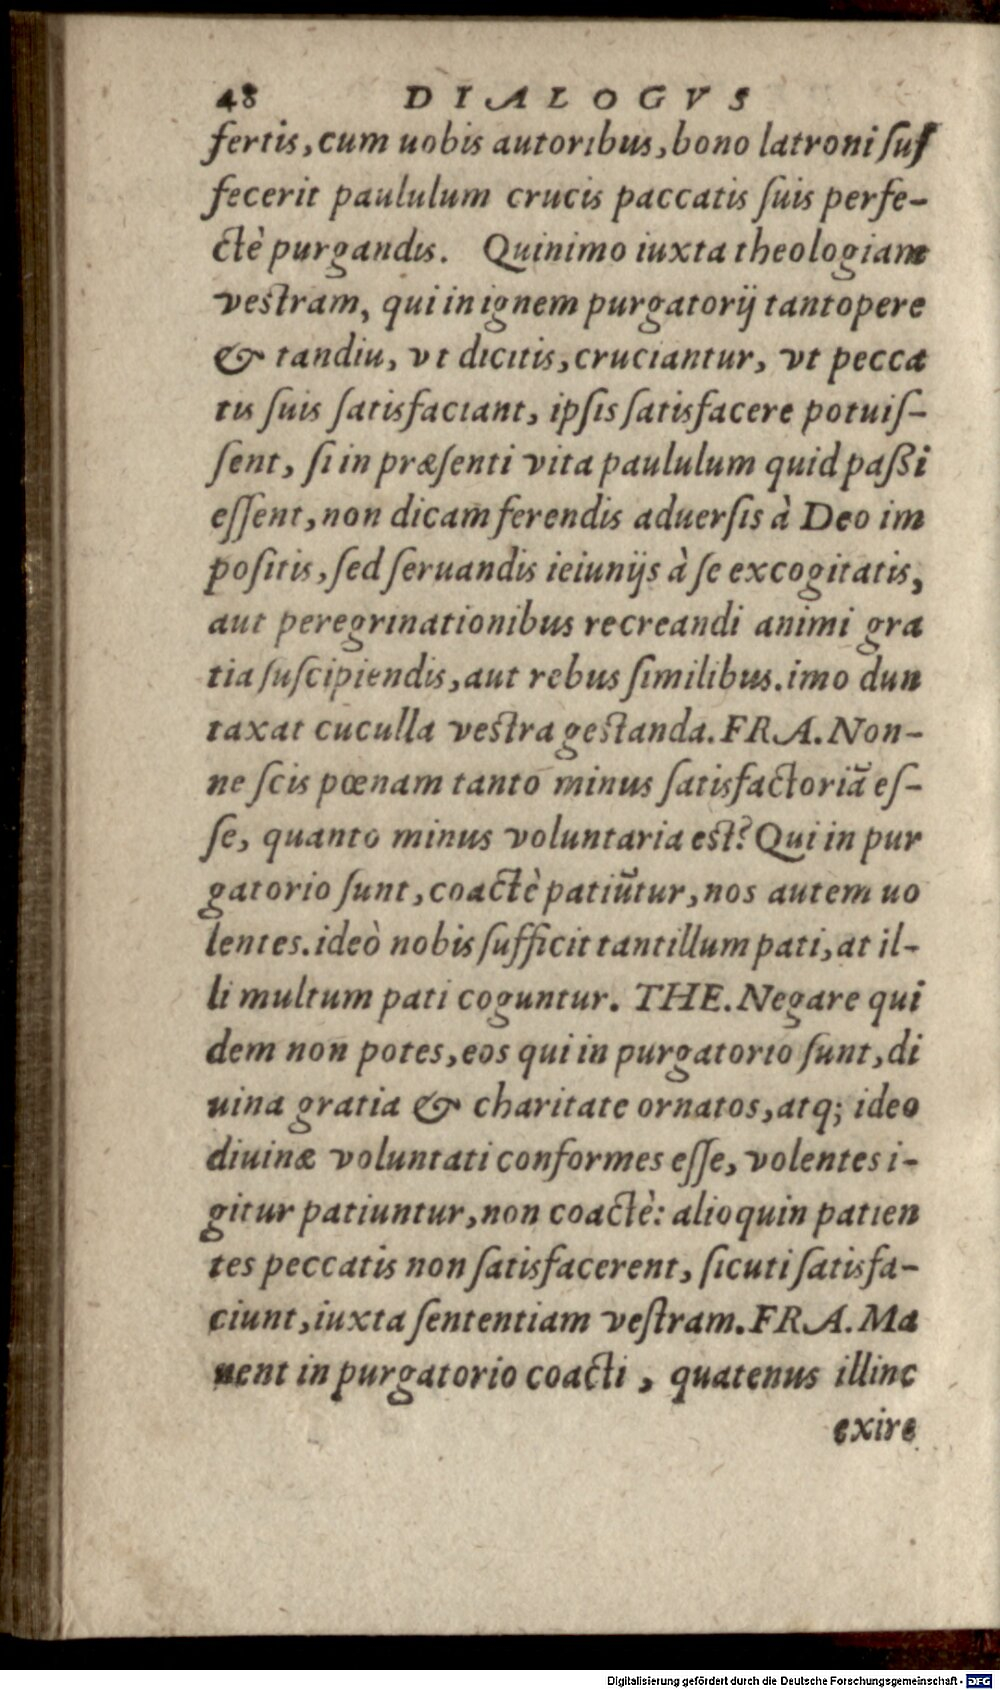 48 DIALOGVS
fertis, cum uobis autoribus, bono latroni ſuf
fecerit paululum crucis paccatis ſuis perfe-
ctè purgandis. Quinimo iuxta theologiam
vestram, qui in ignem purgatorij tantopere
& tandiu, vt dicitis, cruciantur, vt pecca
tis ſuis ſatisfaciant, ipſis ſatisfacere potuiſ-
ſent, ſi in præſenti vita paululum quid paßi
eſſent, non dicam ferendis aduerſis à Deo im
poſitis, ſed ſeruandis ieiunijs à ſe excogitatis,
aut peregrinationibus recreandi animi gra
tia ſuſcipiendis, aut rebus ſimilibus. imo dun
taxat cuculla vestra gestanda. FRA. Non-
ne ſcis pœnam tanto minus ſatisfactoriā eſ-
ſe, quanto minus voluntaria est? Qui in pur
gatorio ſunt, coactè patiūtur, nos autem uo
lentes. ideò nobis ſufficit tantillum pati, at il-
li multum pati coguntur. THE. Negare qui
dem non potes, eos qui in purgatorio ſunt, di
uina gratia & charitate ornatos, atq; ideo
diuinæ voluntati conformes eſſe, volentes i-
gitur patiuntur, non coactè: alioquin patien
tes peccatis non ſatisfacerent, ſicuti ſatisfa-
ciunt, iuxta ſententiam veſtram. FRA. Ma
nent in purgatorio coacti, quatenus illinc
exire
Digitalisierung gefördert durch die Deutsche Forschungsgemeinschaft - DFG